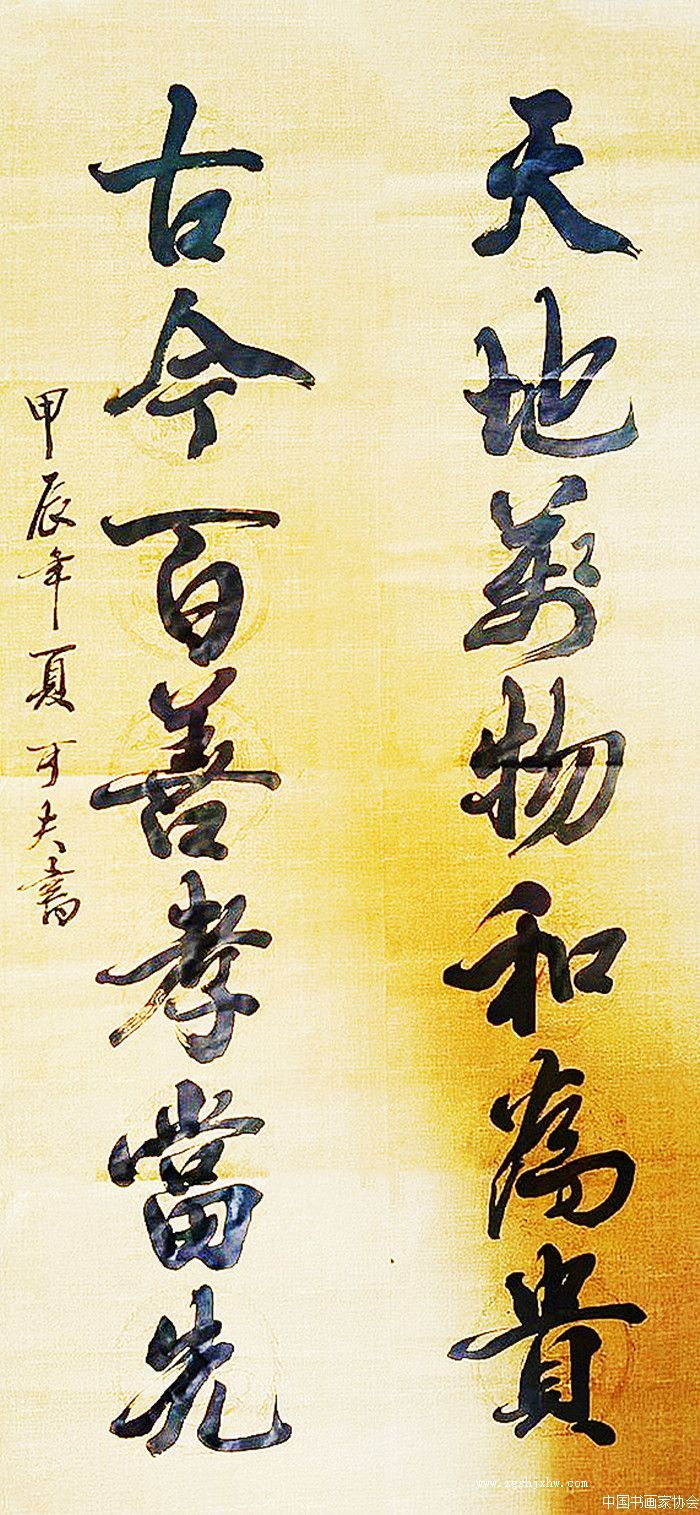 天地萬物和為貴
古今百善孝當先
甲辰年夏可夫書
www.zgshjxhw.com
中国书画家协会